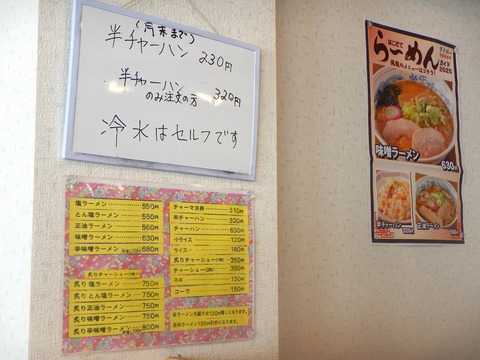 (月末まで)
半チャーハン 230円
半チャーハン
のみ注文の方 320円
冷水はセルフです
塩ラーメン 550円
とん塩ラーメン 550円
正油ラーメン 560円
味噌ラーメン 630円
辛味噌ラーメン 680円
炙りチャーシュー
炙り塩ラーメン 750
炙りとん塩ラーメン 750
炙り正油ラーメン 750
炙り味噌ラーメン 750
炙り辛味噌ラーメン 800円
チャーマヨ丼 310円
半チャーハン 320円
チャーハン 630円
小ライス 120円
ライス 180円
炙りチャーシュー 350円
チャーシュー 350円
ネギ 150円
コーラ 150円
はこだて
らーめん
ガイド
2025
味噌ラーメン
630円
半チャーハン
正油ラーメン